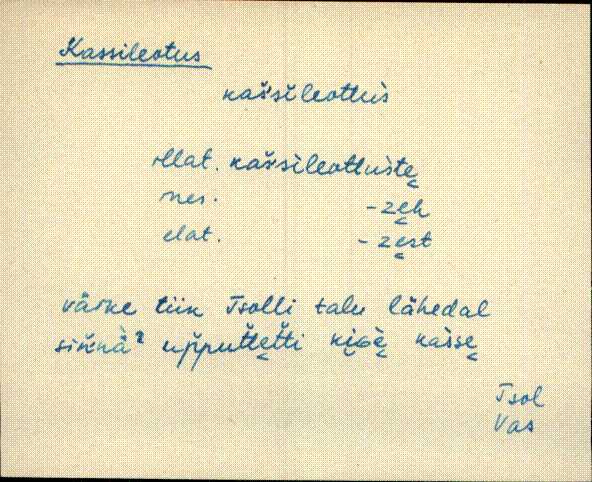 Kassileotus
kaššileottus
illat. kaššileottuste̮
ines. -ze̮h
elat. -ze̮st
väike tiik Tsolli talu lähedal
siňnä² upputte̮tti kasse̮
Tsol
Vas